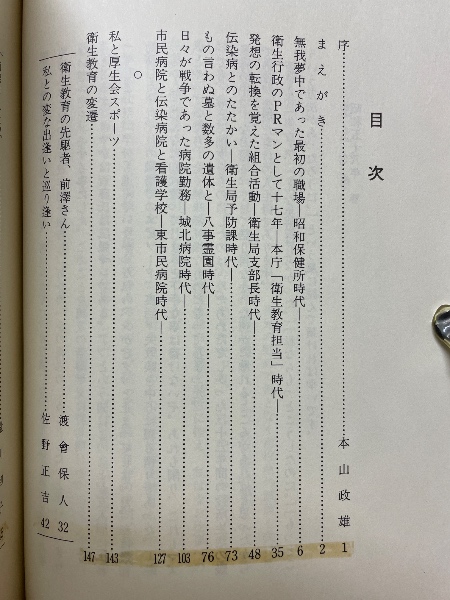 目次
序 本山政雄 1
まえがき 2
無我夢中であった最初の職場―昭和保健所時代 6
衛生行政のＰＲマンとして十七年―本庁「衛生教育担当」時代― 35
発想の転換を覚えた組合活動―衛生局支部長時代 48
伝染病とのたたかい―衛生局予防課時代 73
もの言わぬ墓と数多の遺体と―八事霊園時代 76
日々が戦争であった病院勤務―城北病院時代 103
市民病院と伝染病院と看護学校―東市民病院時代 127
○
私と厚生会スポーツ 143
衛生教育の変遷 147
衛生教育の先駆者、前澤さん 渡會保人 32
私との変な出逢いと巡り逢い 佐野正吉 42